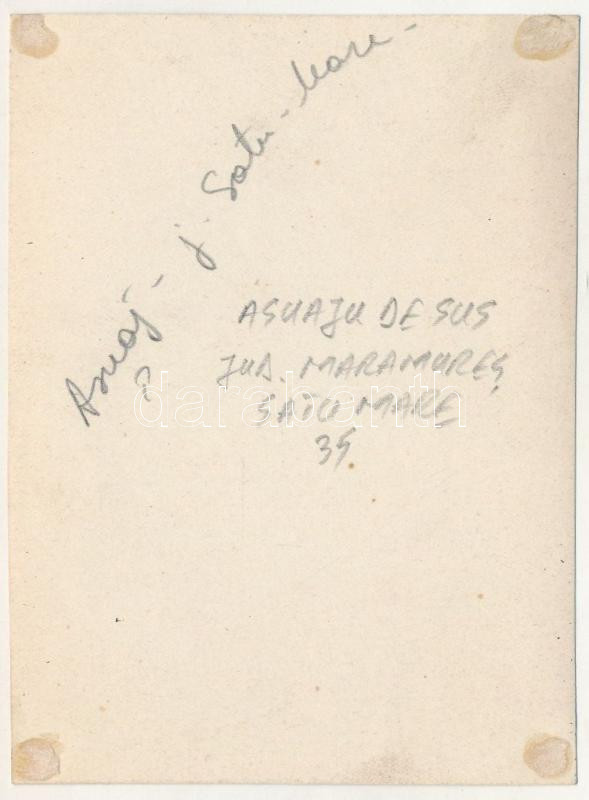 Asuaj - j. Satu - Mare -
?
ASUAJU DE SUS
JUD. MARAMUREȘ
SATU MARE
35
darabanth